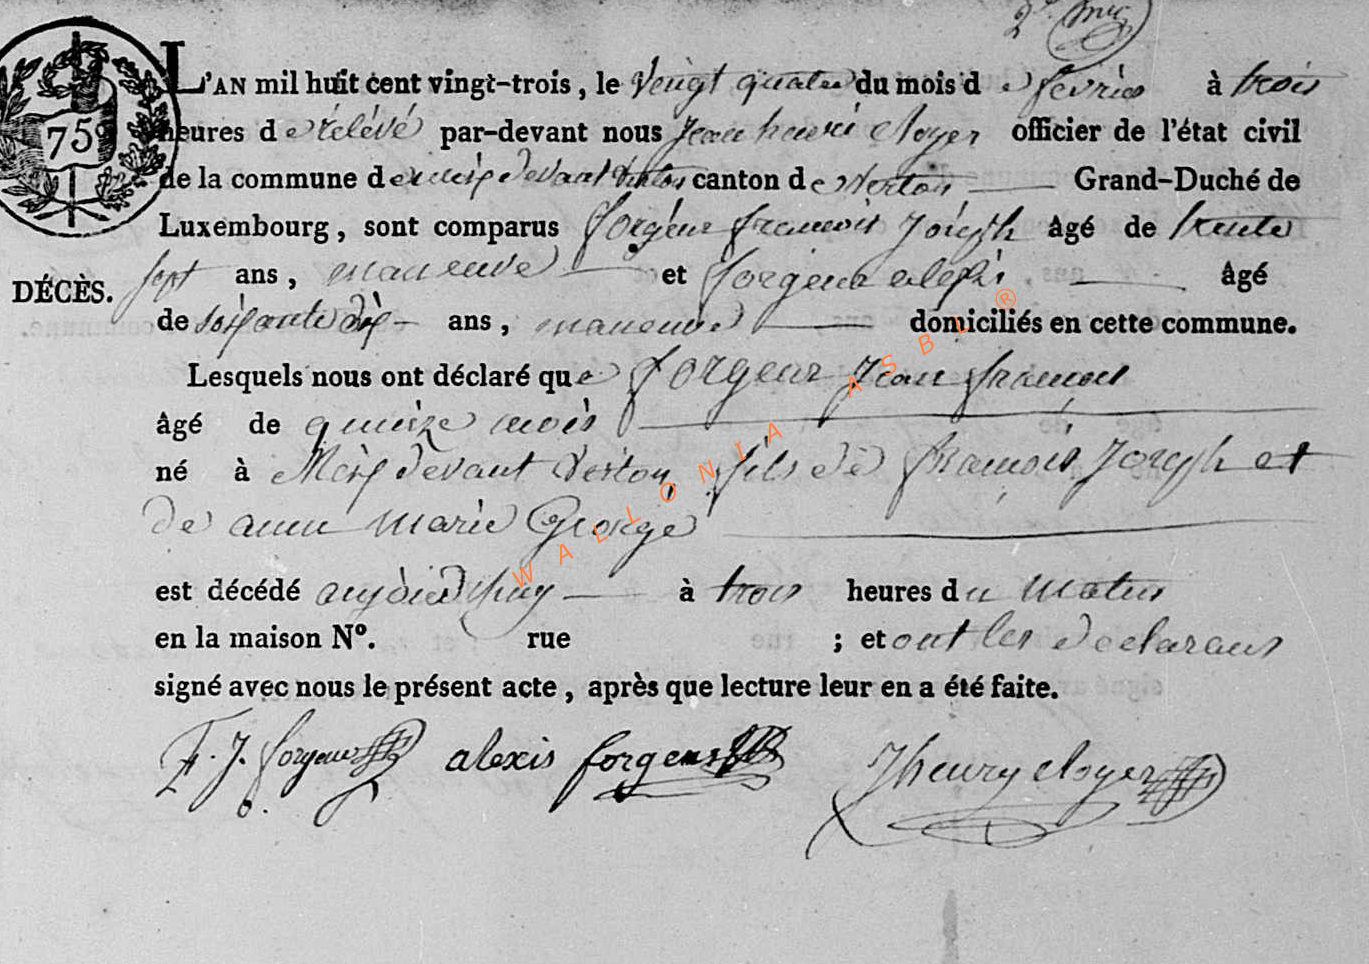 L'AN mil huit cent vingt-trois, le veingt quatre du mois de fevrier à trois
75
heures de rélévé par-devant nous Jean henri cloyer officier de l'état civil
de la commune de meix devant virton canton de virton Grand-Duché de
Luxembourg, sont comparus forgeur francois Joseph âgé de trente
DÉCÈS.
sept ans, maneuvre et forgeur alexis âgé
de soixante dix ans, maneuvre domiciliés en cette commune.
Lesquels nous ont déclaré que forgeur Jean francois
âgé de quinze mois
né à Meix devant Virton, fils de francois Joseph et
de anne marie George
est décédé aujourdhuy à trois heures du matin
en la maison N°. rue ; et ont les declarans
signé avec nous le présent acte, après que lecture leur en a été faite.
F. J. forgeur alexis forgeur Jhenry cloyer
WALLONIA ASBL ®